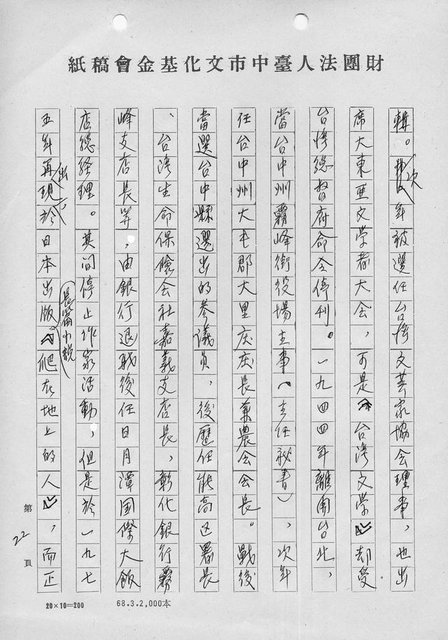 財團法人臺中市文化基金會稿紙
輯。次年被選任台湾文芸家協会理事,也出
席大東亜文学者大会,可是「台湾文学」却受
台湾總督府命令停刊。一九四四年離開台北,
當台中州霧峰街役場主事(主任秘書),次年
任台中州大屯郡大里庄庄長兼農会会長。戰後
當選台中縣選出的參議員,後歷任能高区署長
、台湾生命保険会社嘉義支店長,彰化銀行霧
峰支店長等,由銀行退職後任日月潭國際大飯
店總経理。其间停止作家活動,但是於一九七
五年再出現於日本出版長篇小説「爬在地上的人」,而正
第22頁
20×10=200
68.3.2,000本